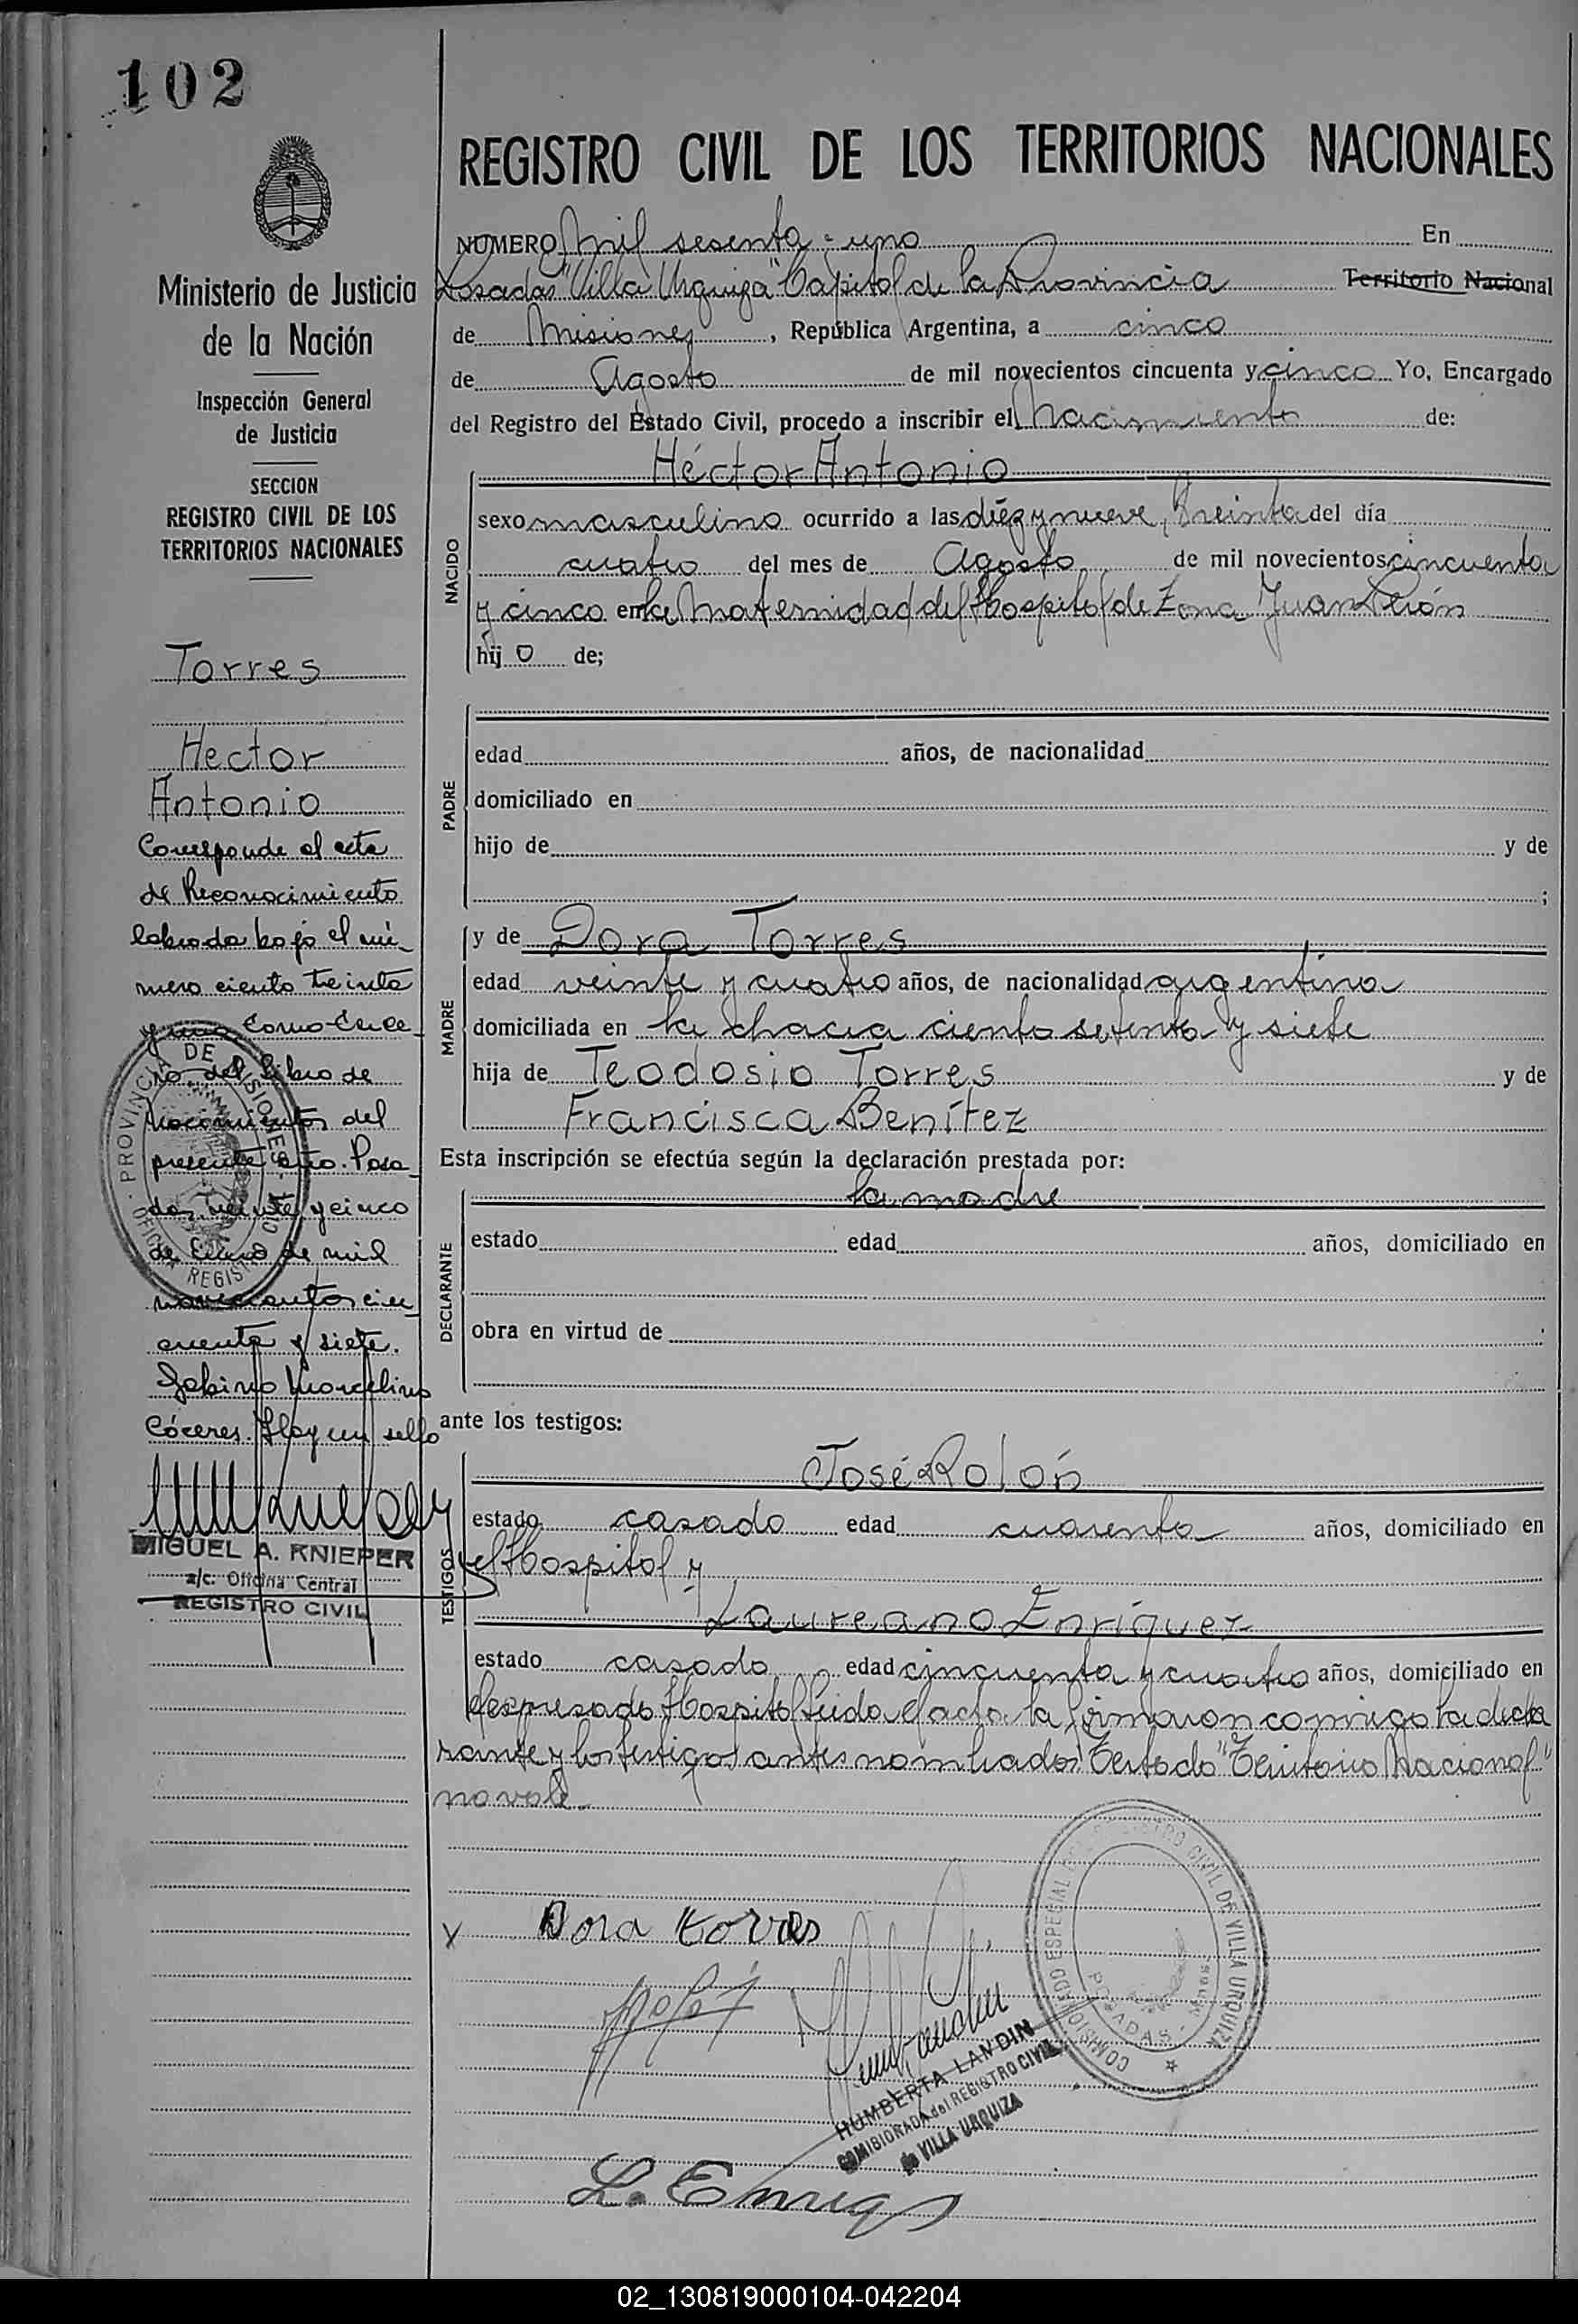 102
REGISTRO CIVIL DE LOS TERRITORIOS NACIONALES
NUMERO mil sesenta - uno En
Posadas "Villa Urquiza" Capital de la Provincia Territorio Nacional
de Misiones, República Argentina, a cinco
de Agosto de mil novecientos cincuenta y cinco Yo, Encargado
del Registro del Estado Civil, procedo a inscribir el Nacimiento de:
Héctor Antonio
NACIDO
sexo masculino ocurrido a las diez y nueve, treinta del día
cuatro del mes de Agosto de mil novecientos cincuenta
y cinco en la Maternidad del Hospital de Zona Juan Perón
hijo de;
PADRE
edad años, de nacionalidad
domiciliado en
hijo de y de
;
MADRE
y de Dora Torres
edad veinte y cuatro años, de nacionalidad argentina
domiciliada en la chacra ciento setenta y siete
hija de Teodosio Torres y de
Francisca Benítez
Esta inscripción se efectúa según la declaración prestada por:
la madre
DECLARANTE
estado edad años, domiciliado en
obra en virtud de
ante los testigos:
TESTIGOS
José Rolón
estado casado edad cuarenta años, domiciliado en
el Hospital y
Laureano Enríquez
estado casado edad cincuenta y cuatro años, domiciliado en
el expresado Hospital Leida el acta la firmaron conmigo la decla
rante y los testigos antes nombrados Testado "Territorio Nacional"
no vale.
x Dora torres
HUMBERTA LANDIN
COMISIONADA del REGISTRO CIVIL
de VILLA URQUIZA
COMISIONADO ESPECIAL REGISTRO CIVIL DE VILLA URQUIZA
POSADAS - Mnes.
Ministerio de Justicia
de la Nación
Inspección General
de Justicia
SECCION
REGISTRO CIVIL DE LOS
TERRITORIOS NACIONALES
Torres
Hector
Antonio
Corresponde al acta
de Reconocimiento
labrada bajo el nú-
mero ciento treinta
y uno
del Libro de
Nacimientos del
presente año. Posa
das, veinte y cinco
de Enero de mil
novecientos cin
cuenta y siete.
Gabino Marcelino
Cóceres. Hay un sello
PROVINCIA DE MISIONES
OFICINA REGISTRO CIVIL
MIGUEL A. KNIEPER
a/c. Oficina Central
REGISTRO CIVIL
02_130819000104-042204